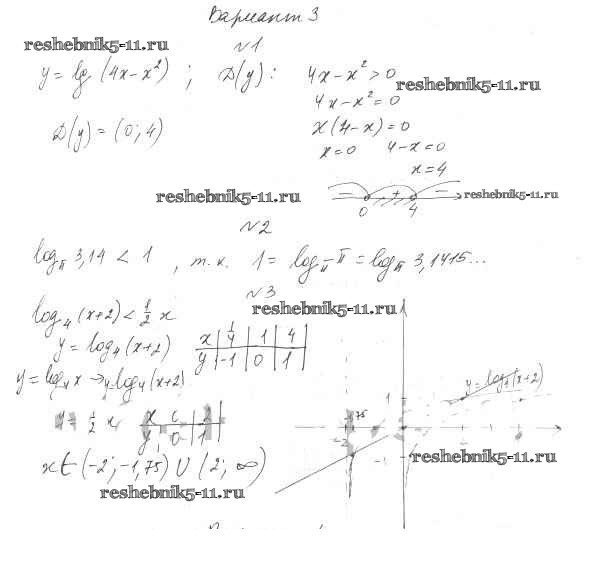 Вариант 3
reshebnik5-11.ru
№1
y = lg (4x - x²) ; D(y): 4x - x² > 0
reshebnik5-11.ru
4x - x² = 0
D(y) = (0; 4)
x(4-x) = 0
x=0 4-x=0
x=4
reshebnik5-11.ru
− + − reshebnik5-11.ru
0 4
№2
log_π 3,14 < 1 , т.к. 1 = log_π π = log_π 3,1415...
№3
reshebnik5-11.ru
log₄(x+2) < 1/2 x
y = log₄(x+2)
x | 1/4 | 1 | 4
y | -1 | 0 | 1
y = log₄x → log₄(x+2)
y = log₄(x+2)
y = 1/2 x
x | 0 | 2
y | 0 | 1
1
-2
-1
x ∈ (-2; -1,75) ∪ (2; ∞)
reshebnik5-11.ru
reshebnik5-11.ru